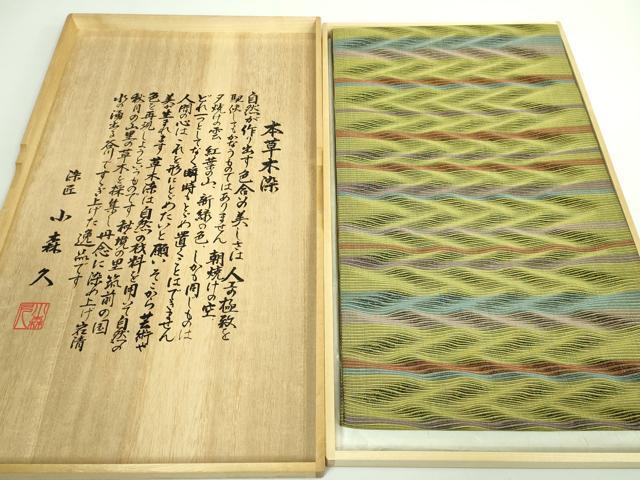 本草木染
自然が作り出す色合の美しさは人工の極致を
駆使してもかなうものではありません 朝焼けの空、
夕焼けの雲、紅葉の山、新緑の色、しかも同じものは
どれ一つとしてなく瞬時もとどめ置くことはできません
人間の心はこれを形にとどめたいと願いそこから芸術や
美が生まれます 草木染は自然の材料を用いて自然の
色を再現しようというものです 秘境の里筑前の国
秋月の山里の草木を採集し丹念に染め上げ岩清
水の湧出る谷川ですすぎ上げた逸品です
染匠 小森久